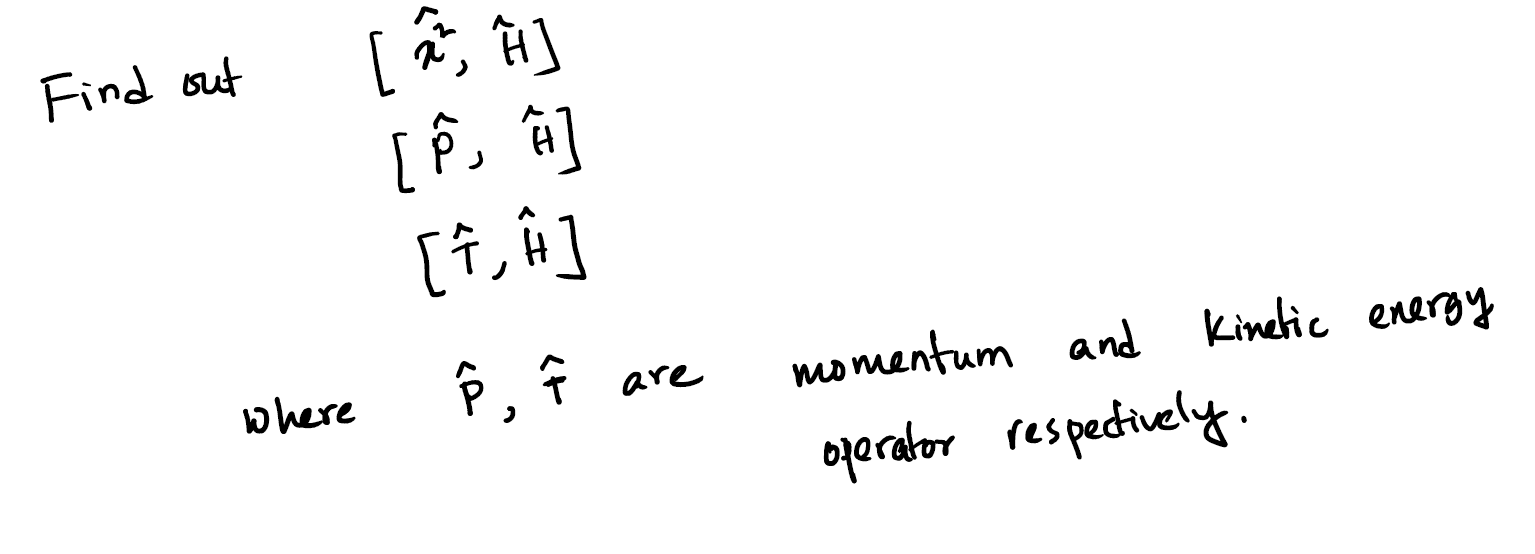 Find out [ x̂², Ĥ]
[ p̂, Ĥ]
[T̂, Ĥ]
where p̂, T̂ are momentum and Kinetic energy
operator respectively.